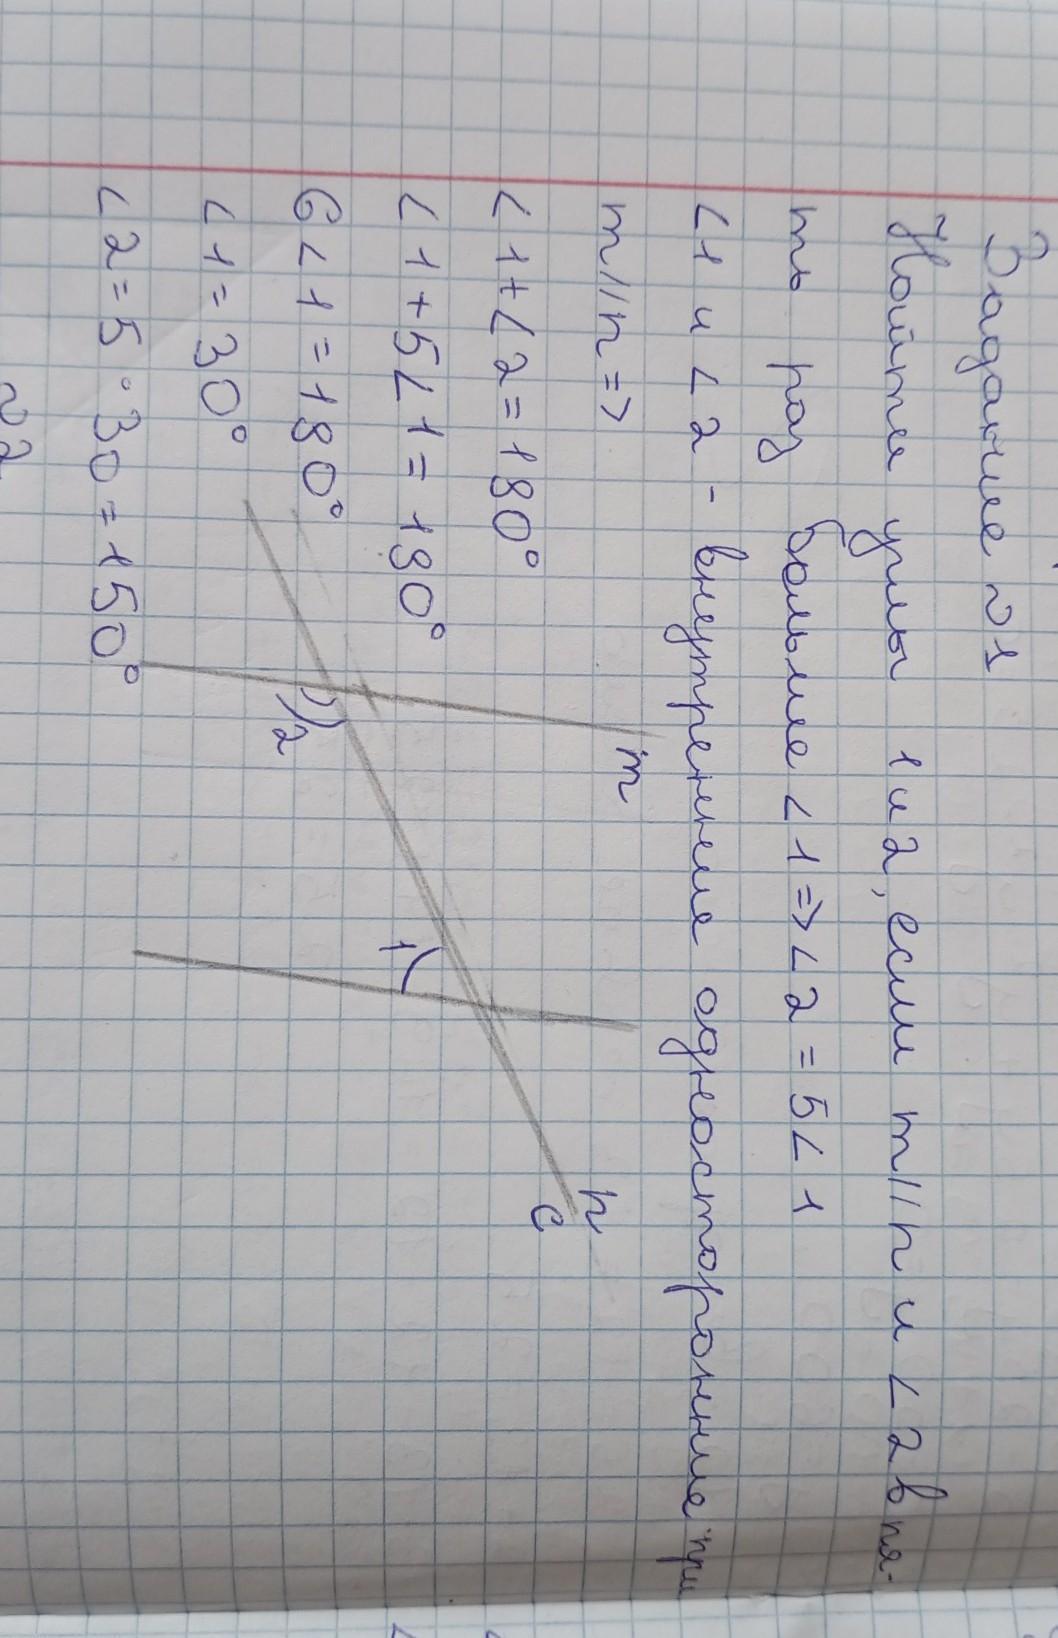 Задание ~ 1
Найти углы 1 и 2, если m||n и ∠2 в пя-
ть раз больше ∠1=>∠2=5∠1
∠1 и ∠2 - внутренние односторонние при
m||n=>
∠1+∠2=180°
∠1+5∠1=180°
6∠1=180°
∠1=30°
∠2=5·30=150°
m
2
1
n
c
~2